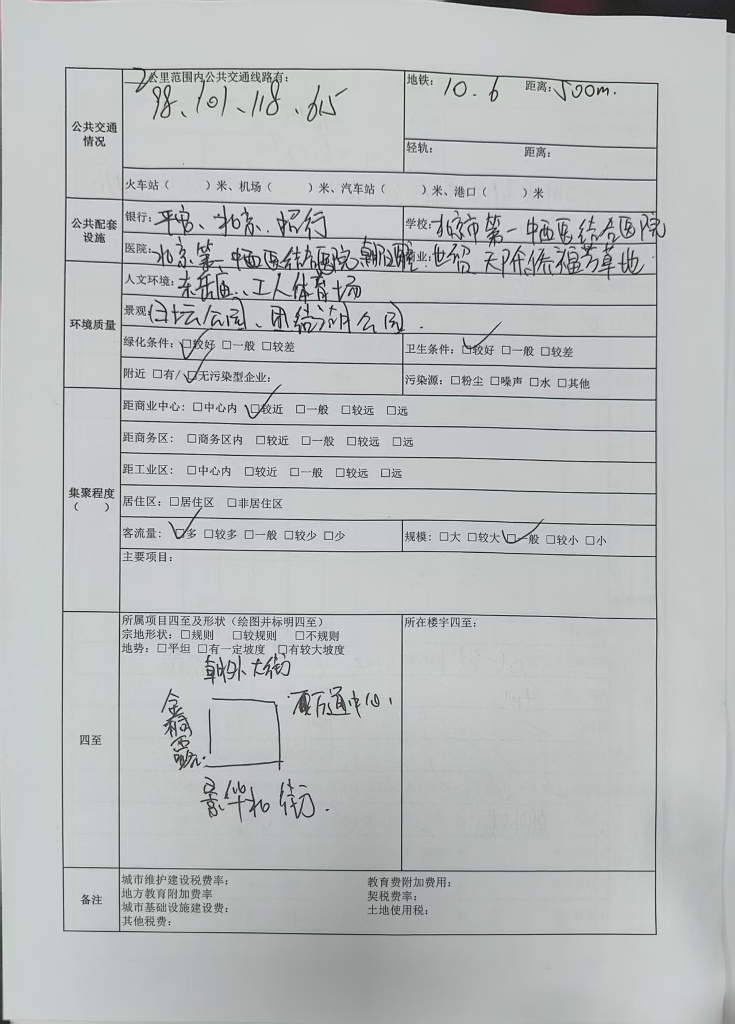 2公里范围内公共交通线路有:
98、101、118、615
地铁: 10.6 距离: 500m.
公共交通情况
轻轨: 距离:
火车站( )米、机场( )米、汽车站( )米、港口( )米
公共配套设施
银行: 平安、北京、招行
学校: 北京市第一中西医结合医院
医院: 北京第一中西医结合医院 朝阳医院
商业: 世贸天阶 侨福芳草地
环境质量
人文环境: 东岳庙、工人体育场
景观 日坛公园、团结湖公园.
绿化条件: ☑较好 □一般 □较差
卫生条件: ☑较好 □一般 □较差
附近 □有/☑无污染型企业:
污染源: □粉尘 □噪声 □水 □其他
集聚程度
( )
距商业中心: □中心内 ☑较近 □一般 □较远 □远
距商务区: □商务区内 □较近 □一般 □较远 □远
距工业区: □中心内 □较近 □一般 □较远 □远
居住区: □居住区 □非居住区
客流量: ☑多 □较多 □一般 □较少 □少
规模: □大 □较大 ☑一般 □较小 □小
主要项目:
四至
所属项目四至及形状(绘图并标明四至)
宗地形状: □规则 □较规则 □不规则
地势: □平坦 □有一定坡度 □有较大坡度
所在楼宇四至:
朝外大街
金桐西路.
通中心
景华北街.
备注
城市维护建设税费率: 教育费附加费用:
地方教育附加费率 契税费率:
城市基础设施建设费: 土地使用税:
其他税费: